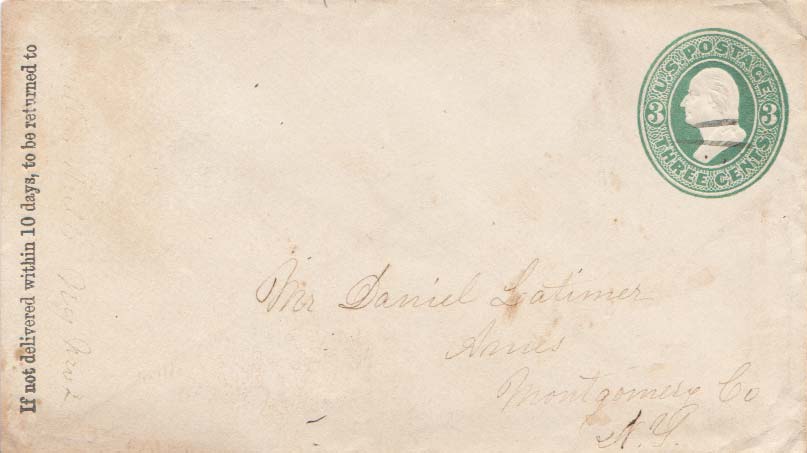 If not delivered within 10 days, to be returned to
U.S. POSTAGE
3 3
THREE CENTS
Mr Daniel Latimer
Ames
Montgomery Co
N.Y.